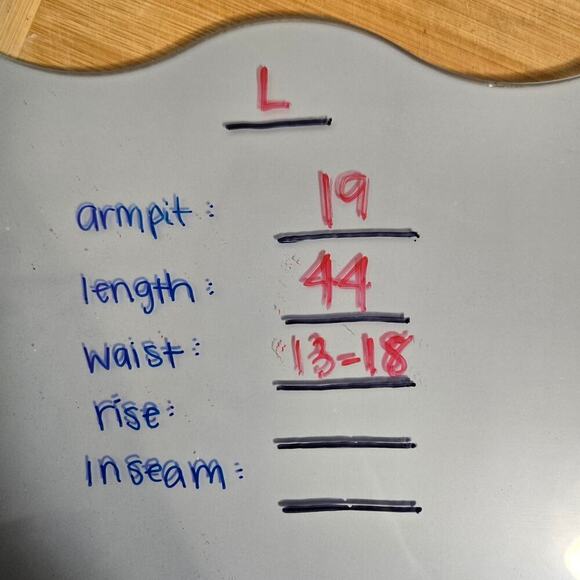 L
armpit: 19
length: 44
waist: 13-18
rise:
inseam: